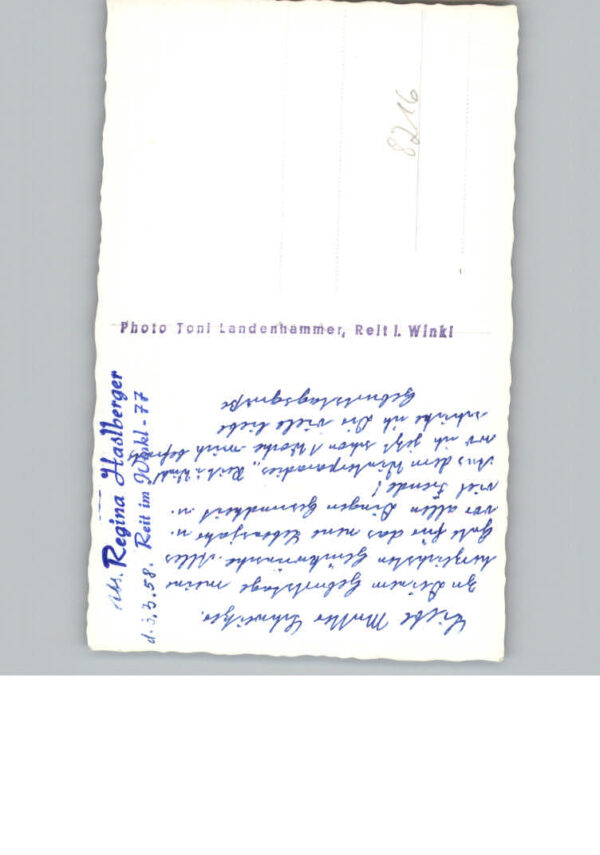 Liebe Mutter Schweitzer.
Zu Deinem Geburtstage meine
herzlichsten Glückwünsche. Alles
Gute für das neue Lebensjahr u.
vor allen Dingen Gesundheit u.
viel Freude!
Aus dem Winterparadies „Reit i. Winkl"
wo ich jetzt schon 1 Woche mich befinde
schicke ich Dir viele liebe
Geburtstagsgrüße
Abs. Regina Haslberger
d. 3.3.58. Reit im Winkl - 77
Photo Toni Landenhammer, Reit i. Winkl
8216